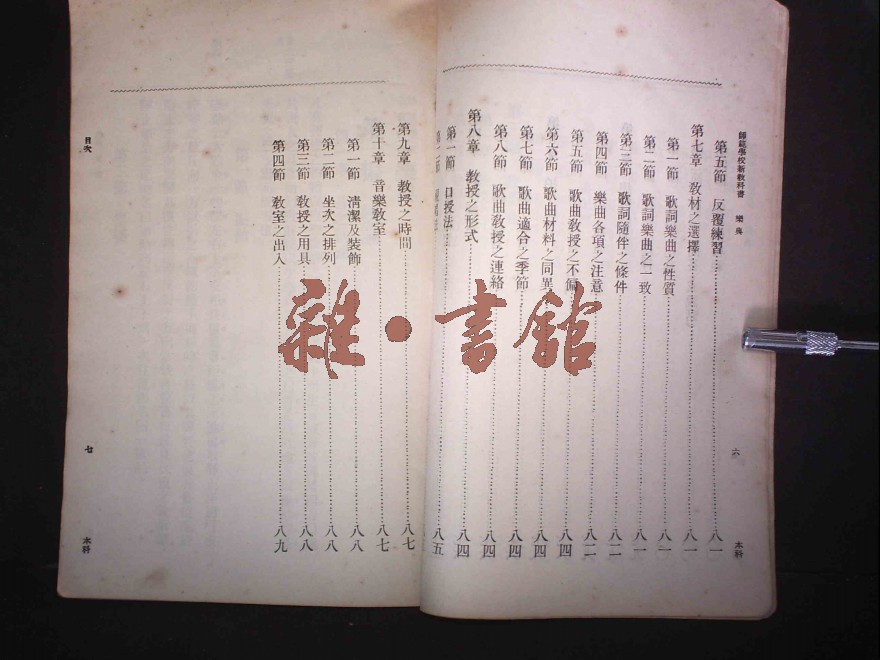 師範學校新教科書 樂典
第五節 反覆練習 八一
第七章 教材之選擇 八一
第一節 歌詞樂曲之性質 八一
第二節 歌詞樂曲之一致 八一
第三節 歌詞隨伴之條件 八二
第四節 樂曲各項之注意 八二
第五節 歌曲教授之不偏 八四
第六節 歌曲材料之同異 八四
第七節 歌曲適合之季節 八四
第八節 歌曲教授之連絡 八四
第八章 教授之形式 八四
第一節 口授法 八五
六
本科
第九章 教授之時間 八七
第十章 音樂教室 八七
第一節 清潔及裝飾 八八
第二節 坐次之排列 八八
第三節 教授之用具 八八
第四節 教室之出入 八九
目次
七
本科
雜·書館